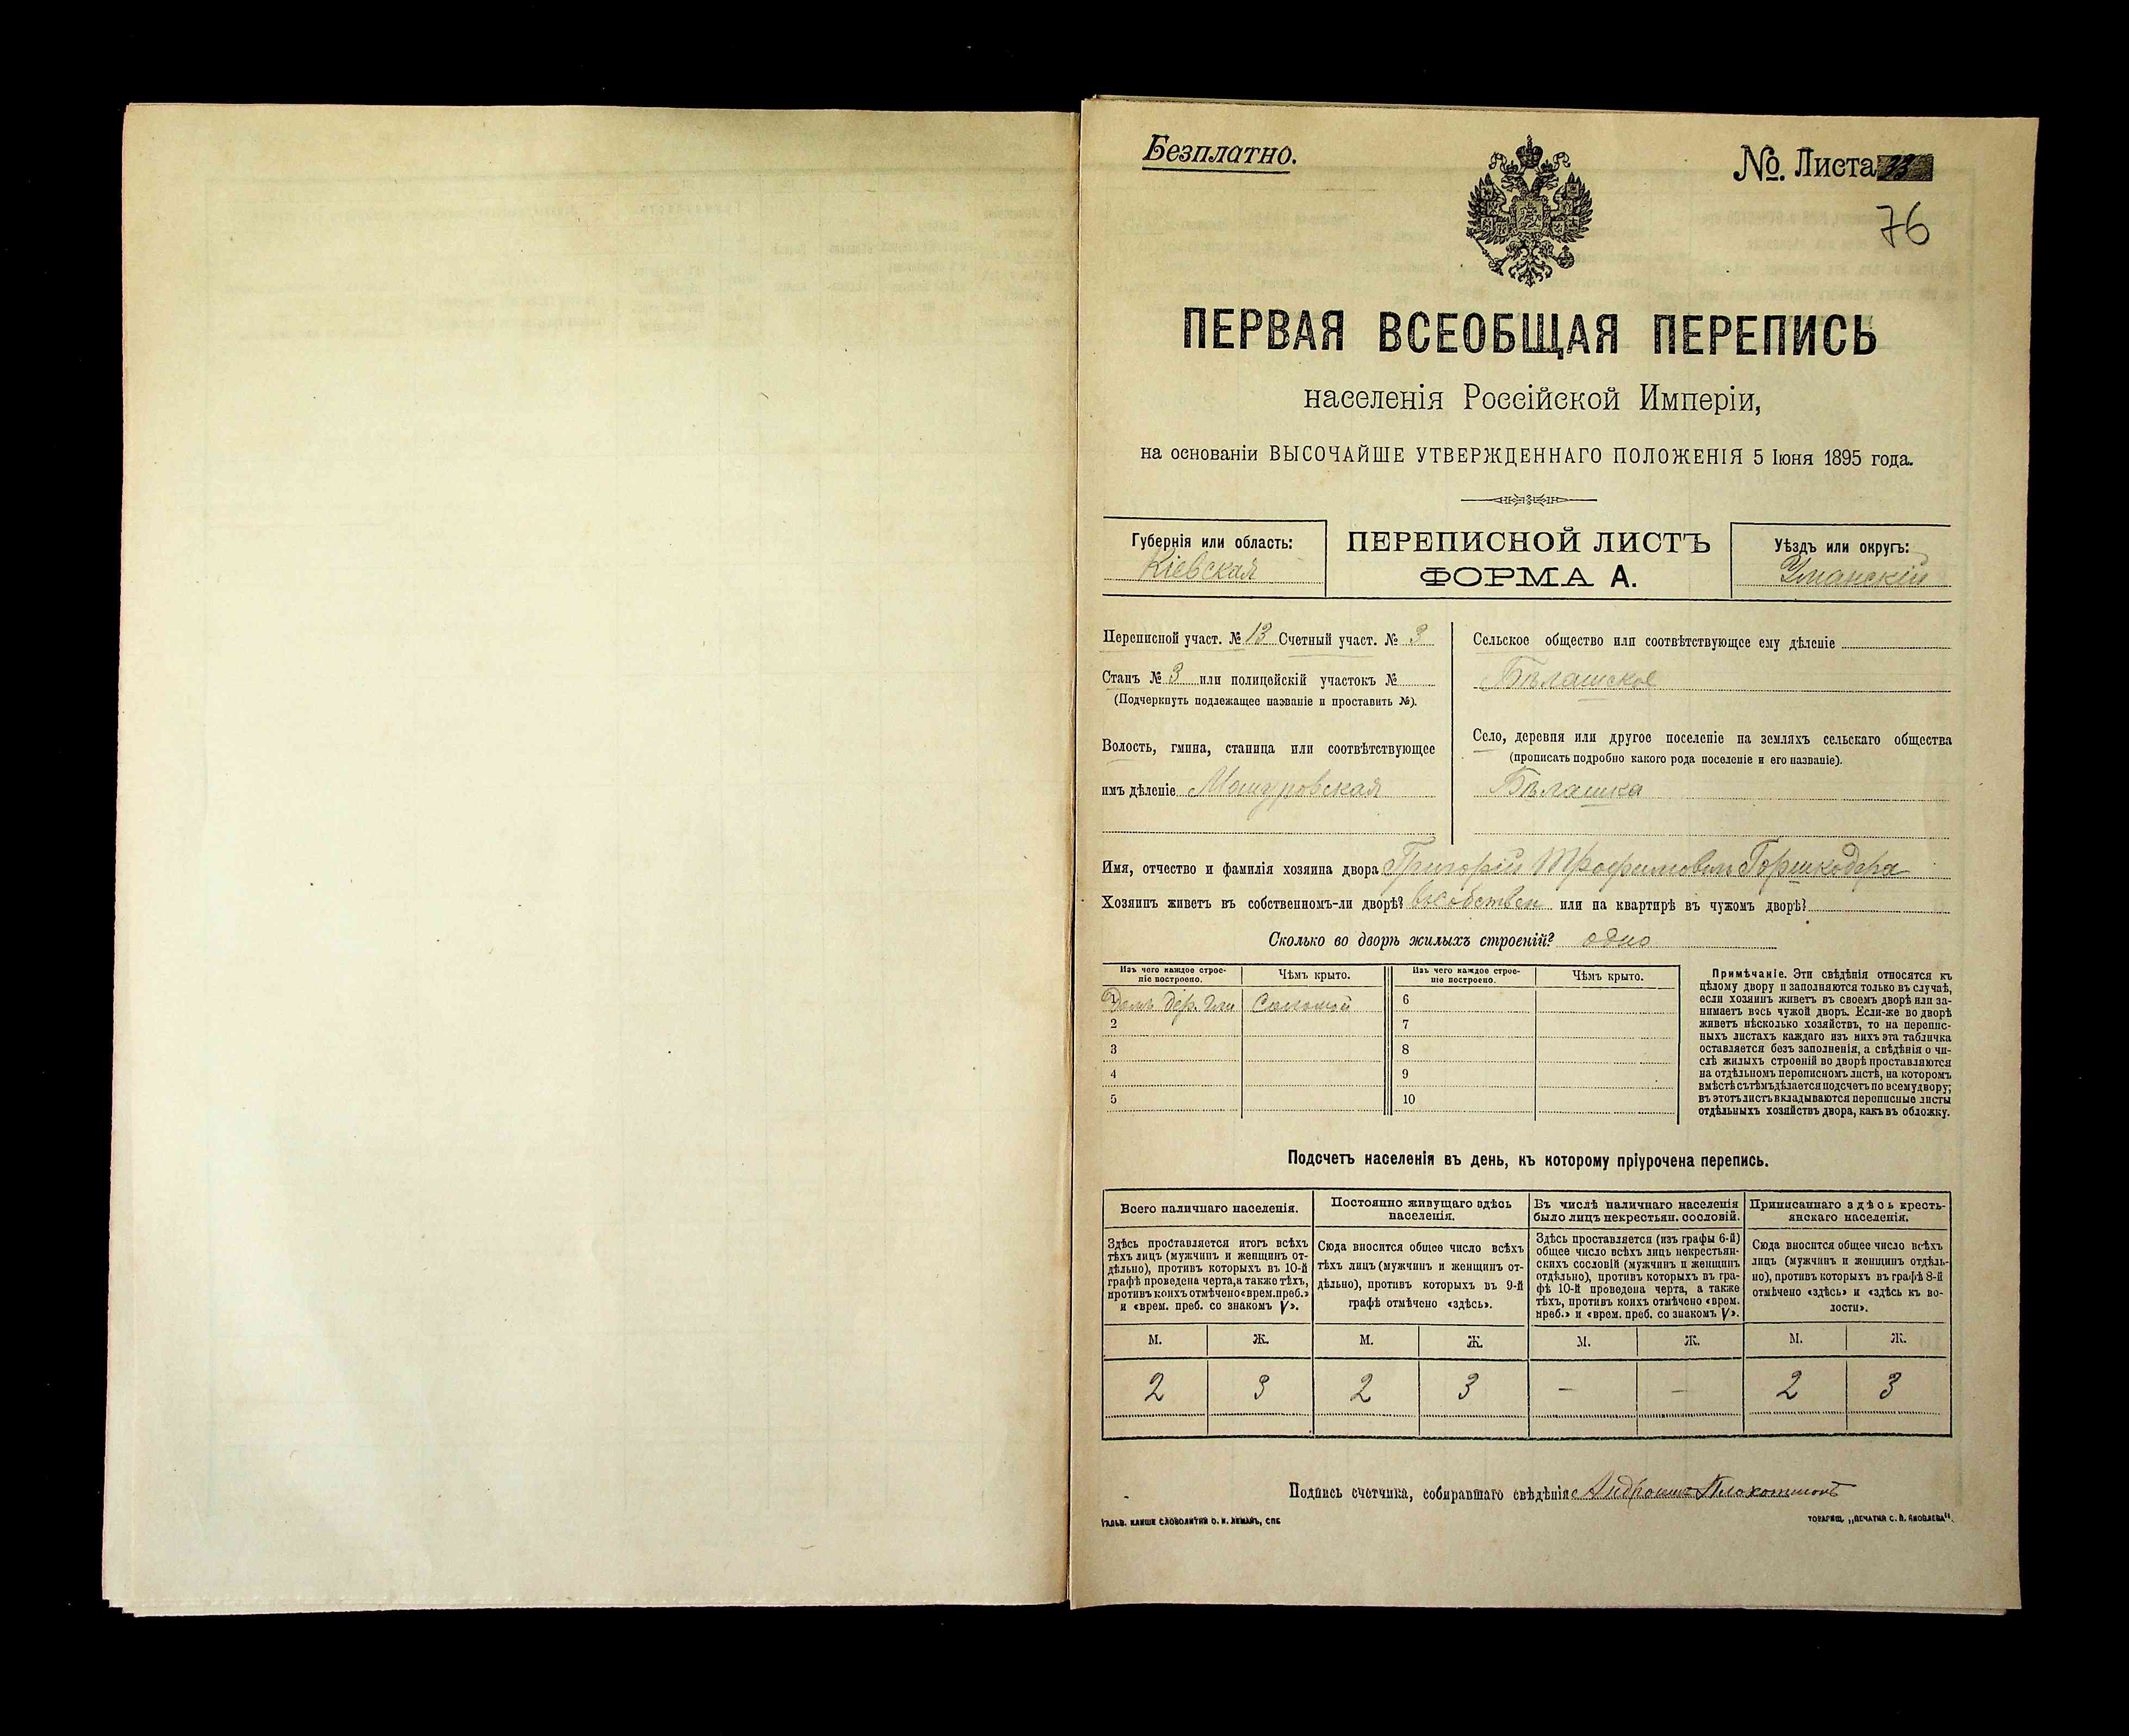 Безплатно.
№. Листа 33
76
ПЕРВАЯ ВСЕОБЩАЯ ПЕРЕПИСЬ
населенія Россійской Имперіи,
на основаніи ВЫСОЧАЙШЕ УТВЕРЖДЕННАГО ПОЛОЖЕНІЯ 5 Іюня 1895 года.
Губернія или область:
Кіевская
ПЕРЕПИСНОЙ ЛИСТЪ
ФОРМА А.
Уѣздъ или округъ:
Уманскій
Переписной участ. № 13 Счетный участ. № 3
Станъ № 3 или полицейскій участокъ №
(Подчеркнуть подлежащее названіе и проставить №).
Волость, гмина, станица или соотвѣтствующее
имъ дѣленіе Машуровская
Сельское общество или соотвѣтствующее ему дѣленіе
Бѣлашское
Село, деревня или другое поселеніе на земляхъ сельскаго общества
(прописать подробно какого рода поселеніе и его названіе).
Бѣлашка
Имя, отчество и фамилія хозяина двора Григорій Трофимовъ Горшкодера
Хозяинъ живетъ въ собственномъ-ли дворѣ? въ собствен или на квартирѣ въ чужомъ дворѣ?
Сколько во дворѣ жилыхъ строеній? одно
Изъ чего каждое строе-
ніе построено.
Чѣмъ крыто.
Изъ чего каждое строе-
ніе построено.
Чѣмъ крыто.
Домъ дер. Соломой
2
3
4
5
6
7
8
9
10
Примѣчаніе. Эти свѣдѣнія относятся къ
цѣлому двору и заполняются только въ случаѣ,
если хозяинъ живетъ въ своемъ дворѣ или за-
нимаетъ весь чужой дворъ. Если-же во дворѣ
живетъ нѣсколько хозяйствъ, то на перепис-
ныхъ листахъ каждаго изъ нихъ эта табличка
оставляется безъ заполненія, а свѣдѣнія о чи-
слѣ жилыхъ строеній во дворѣ проставляются
на отдѣльномъ переписномъ листѣ, на которомъ
вмѣстѣ съ тѣмъ дѣлается подсчетъ по всему двору;
въ этотъ листъ вкладываются переписные листы
отдѣльныхъ хозяйствъ двора, какъ въ обложку.
Подсчетъ населенія въ день, къ которому пріурочена перепись.
Всего наличнаго населенія.
Здѣсь проставляется итогъ всѣхъ
тѣхъ лицъ (мужчинъ и женщинъ от-
дѣльно), противъ которыхъ въ 10-й
графѣ проведена черта, а также тѣхъ,
противъ коихъ отмѣчено «врем. преб.»
и «врем. преб. со знакомъ V».
Постоянно живущаго здѣсь
населенія.
Сюда вносится общее число всѣхъ
тѣхъ лицъ (мужчинъ и женщинъ от-
дѣльно), противъ которыхъ въ 9-й
графѣ отмѣчено «здѣсь».
Въ числѣ наличнаго населенія
было лицъ некрестьян. сословій.
Здѣсь проставляется (изъ графы 6-й)
общее число всѣхъ лицъ некрестьян-
скихъ сословій (мужчинъ и женщинъ
отдѣльно), противъ которыхъ въ гра-
фѣ 10-й проведена черта, а также
тѣхъ, противъ коихъ отмѣчено «врем.
преб.» и «врем. преб. со знакомъ V».
Приписаннаго здѣсь кресть-
янскаго населенія.
Сюда вносится общее число всѣхъ
лицъ (мужчинъ и женщинъ отдѣль-
но), противъ которыхъ въ графѣ 8-й
отмѣчено «здѣсь» и «здѣсь къ во-
лости».
М. Ж. М. Ж. М. Ж. М. Ж.
2 3 2 3 — — 2 3
Подпись счетчика, собиравшаго свѣдѣнія
ГАЛЬВ. КЛИШЕ СЛОВОЛИТНИ О. И. ЛЕМАНЪ, СПБ
ТОВАРИЩ. „ПЕЧАТНЯ С. П. ЯКОВЛЕВА".